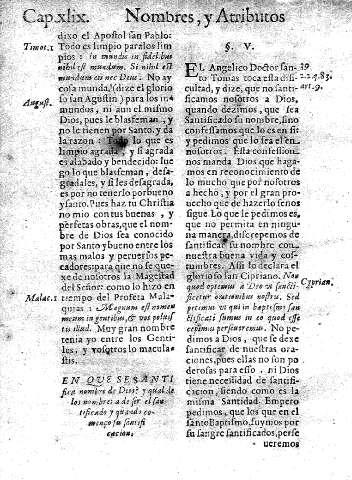 Cap.xlix. Nombres, y Atributos
dixo el Apostol san Pablo:
Timot.1
Todo es limpio paralos lim
pios: in mundis in fidelibus
nihil est mundum. Si nihil est
mundum ait nec Deus. No ay
cosa munda, (dize el glorio
August.
so san Agustin) para los in-
mundos, ni aun el mismo
Dios, pues le blasfeman, y
no le tienen por Santo, y da
la razon: Todo lo que es
limpio agrada, y si agrada
es alabado y bendecido: lue
go lo que blasfeman, desa-
gradales, y si les desagrada,
es por no tenerlo por bueno
y santo. Pues haz tu Christia
no mio con tus buenas, y
perfetas obras, que el nom-
bre de Dios sea conocido
por Santo y bueno entre los
mas malos y peruersos pe-
cadores: para que no se que-
xe de nosotros la Magestad
del Señor: como lo hizo en
Malac.1
tiempo del Profeta Mala-
quias: Magnum est nomen
meum in gentibus, & vos pollui
stis illud. Muy gran nombre
tenia yo entre los Genti-
les, y vosotros lo macula-
stis.
EN QUE SE SANTI
fica nombre de Dios? y qual de
los nombres a de ser el san-
tificado y quando co-
menço su santifi
cacion.
§. V.
EL Angelico Doctor san-
to Tomas toca esta difi-
2.2.q.83.
art.9.
cultad, y dize, que no santi-
ficamos nosotros a Dios,
quando dezimos, que sea
Santificado su nombre, sino
confessamos que lo es en sit
y pedimos que lo sea el en-
nosotros: Esta confession
nos manda Dios que haga-
mos en reconocimiento de
lo mucho que por nosotros
a hecho, y por el gran pro-
uecho que de hazerlo se nos
sigue Lo que le pedimos es,
que no permita en ningu-
na manera discrepemos de
santificar su nombre con
nuestra buena vida y cos-
tumbres. Assi lo declara el
glorioso san Cipriano. Non
Cyprian.
quod optemus a Deo vt sancti-
ficetur orationibus nostris. Sed
petimus vt qui in baptismo san
ctificati sumus in eo quod esse
cepimus perseueremus. No pe-
dimos a Dios, que se dexe
santificar de nuestras ora-
ciones, pues ellas no son po
derosas para esso. ni Dios
tiene necessidad de santifi-
cacion, siendo como es la
misma Santidad. Empero
pedimos, que los que en el
santo Baptismo, fuymos por
su sangre santificados, perse
ueremos